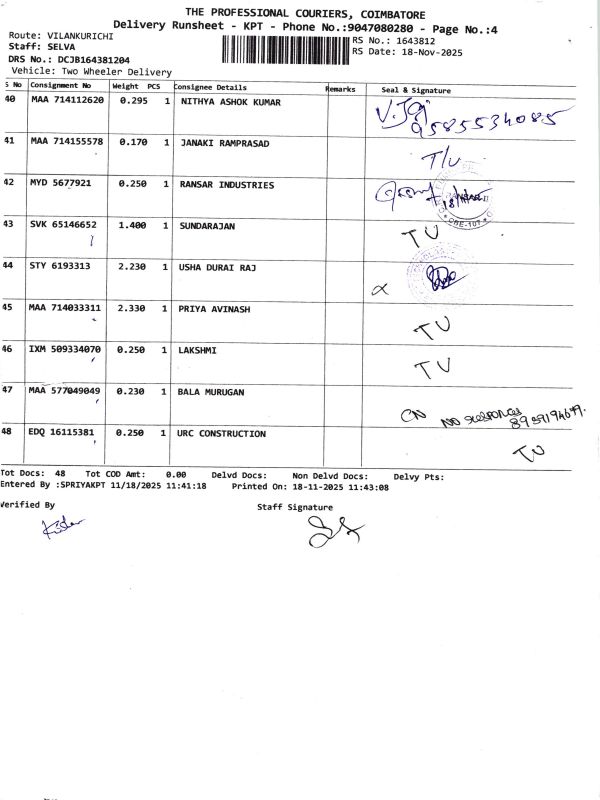 THE PROFESSIONAL COURIERS, COIMBATORE
Delivery Runsheet - KPT - Phone No.:9047080280 - Page No.:4
Route: VILANKURICHI
RS No.: 1643812
Staff: SELVA
RS Date: 18-Nov-2025
DRS No.: DCJB164381204
Vehicle: Two Wheeler Delivery
S No Consignment No Weight PCS Consignee Details Remarks Seal & Signature
40 MAA 714112620 0.295 1 NITHYA ASHOK KUMAR
9585534085
41 MAA 714155578 0.170 1 JANAKI RAMPRASAD T/U
42 MYD 5677921 0.250 1 RANSAR INDUSTRIES
43 SVK 65146652 1.400 1 SUNDARAJAN TU
44 STY 6193313 2.230 1 USHA DURAI RAJ
45 MAA 714033311 2.330 1 PRIYA AVINASH TU
46 IXM 509334070 0.250 1 LAKSHMI TU
47 MAA 577049049 0.230 1 BALA MURUGAN CN NO
48 EDQ 16115381 0.250 1 URC CONSTRUCTION TU
Tot Docs: 48 Tot COD Amt: 0.00 Delvd Docs: Non Delvd Docs: Delvy Pts:
Entered By :SPRIYAKPT 11/18/2025 11:41:18 Printed On: 18-11-2025 11:43:08
Verified By
Staff Signature